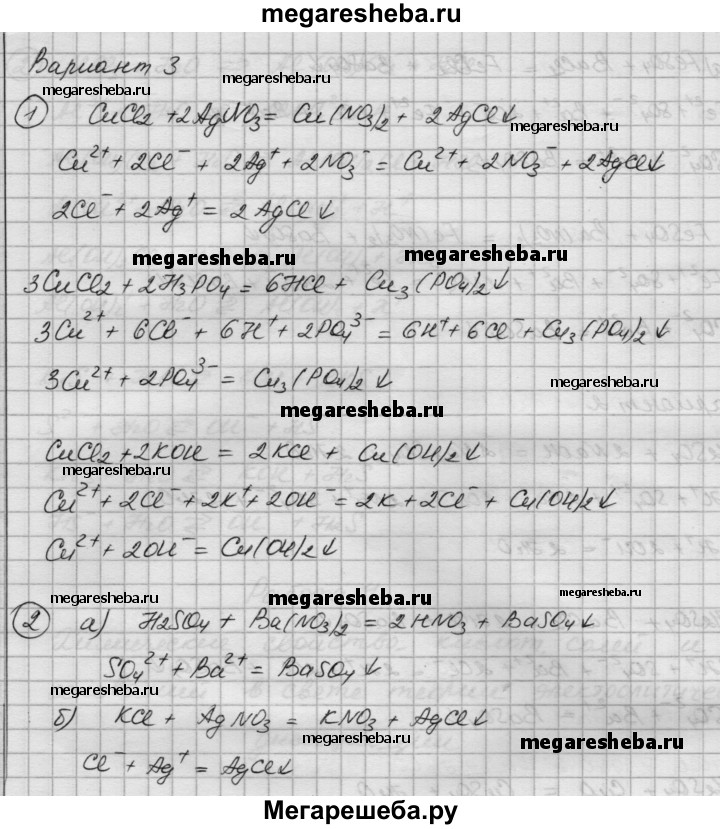 megaresheba.ru
Вариант 3
megaresheba.ru
① CuCl₂ + 2AgNO₃ = Cu(NO₃)₂ + 2AgCl↓
megaresheba.ru
Cu²⁺ + 2Cl⁻ + 2Ag⁺ + 2NO₃⁻ = Cu²⁺ + 2NO₃⁻ + 2AgCl↓
2Cl⁻ + 2Ag⁺ = 2AgCl↓
megaresheba.ru megaresheba.ru
3CuCl₂ + 2H₃PO₄ = 6HCl + Cu₃(PO₄)₂↓
3Cu²⁺ + 6Cl⁻ + 6H⁺ + 2PO₄³⁻ = 6H⁺ + 6Cl⁻ + Cu₃(PO₄)₂↓
3Cu²⁺ + 2PO₄³⁻ = Cu₃(PO₄)₂↓
megaresheba.ru
megaresheba.ru
CuCl₂ + 2KOH = 2KCl + Cu(OH)₂↓
megaresheba.ru
Cu²⁺ + 2Cl⁻ + 2K⁺ + 2OH⁻ = 2K + 2Cl⁻ + Cu(OH)₂↓
Cu²⁺ + 2OH⁻ = Cu(OH)₂↓
megaresheba.ru megaresheba.ru megaresheba.ru
② а) H₂SO₄ + Ba(NO₃)₂ = 2HNO₃ + BaSO₄↓
SO₄²⁺ + Ba²⁺ = BaSO₄↓
megaresheba.ru
б) KCl + AgNO₃ = KNO₃ + AgCl↓
megaresheba.ru megaresheba.ru
Cl⁻ + Ag⁺ = AgCl↓
Мегарешеба.ру